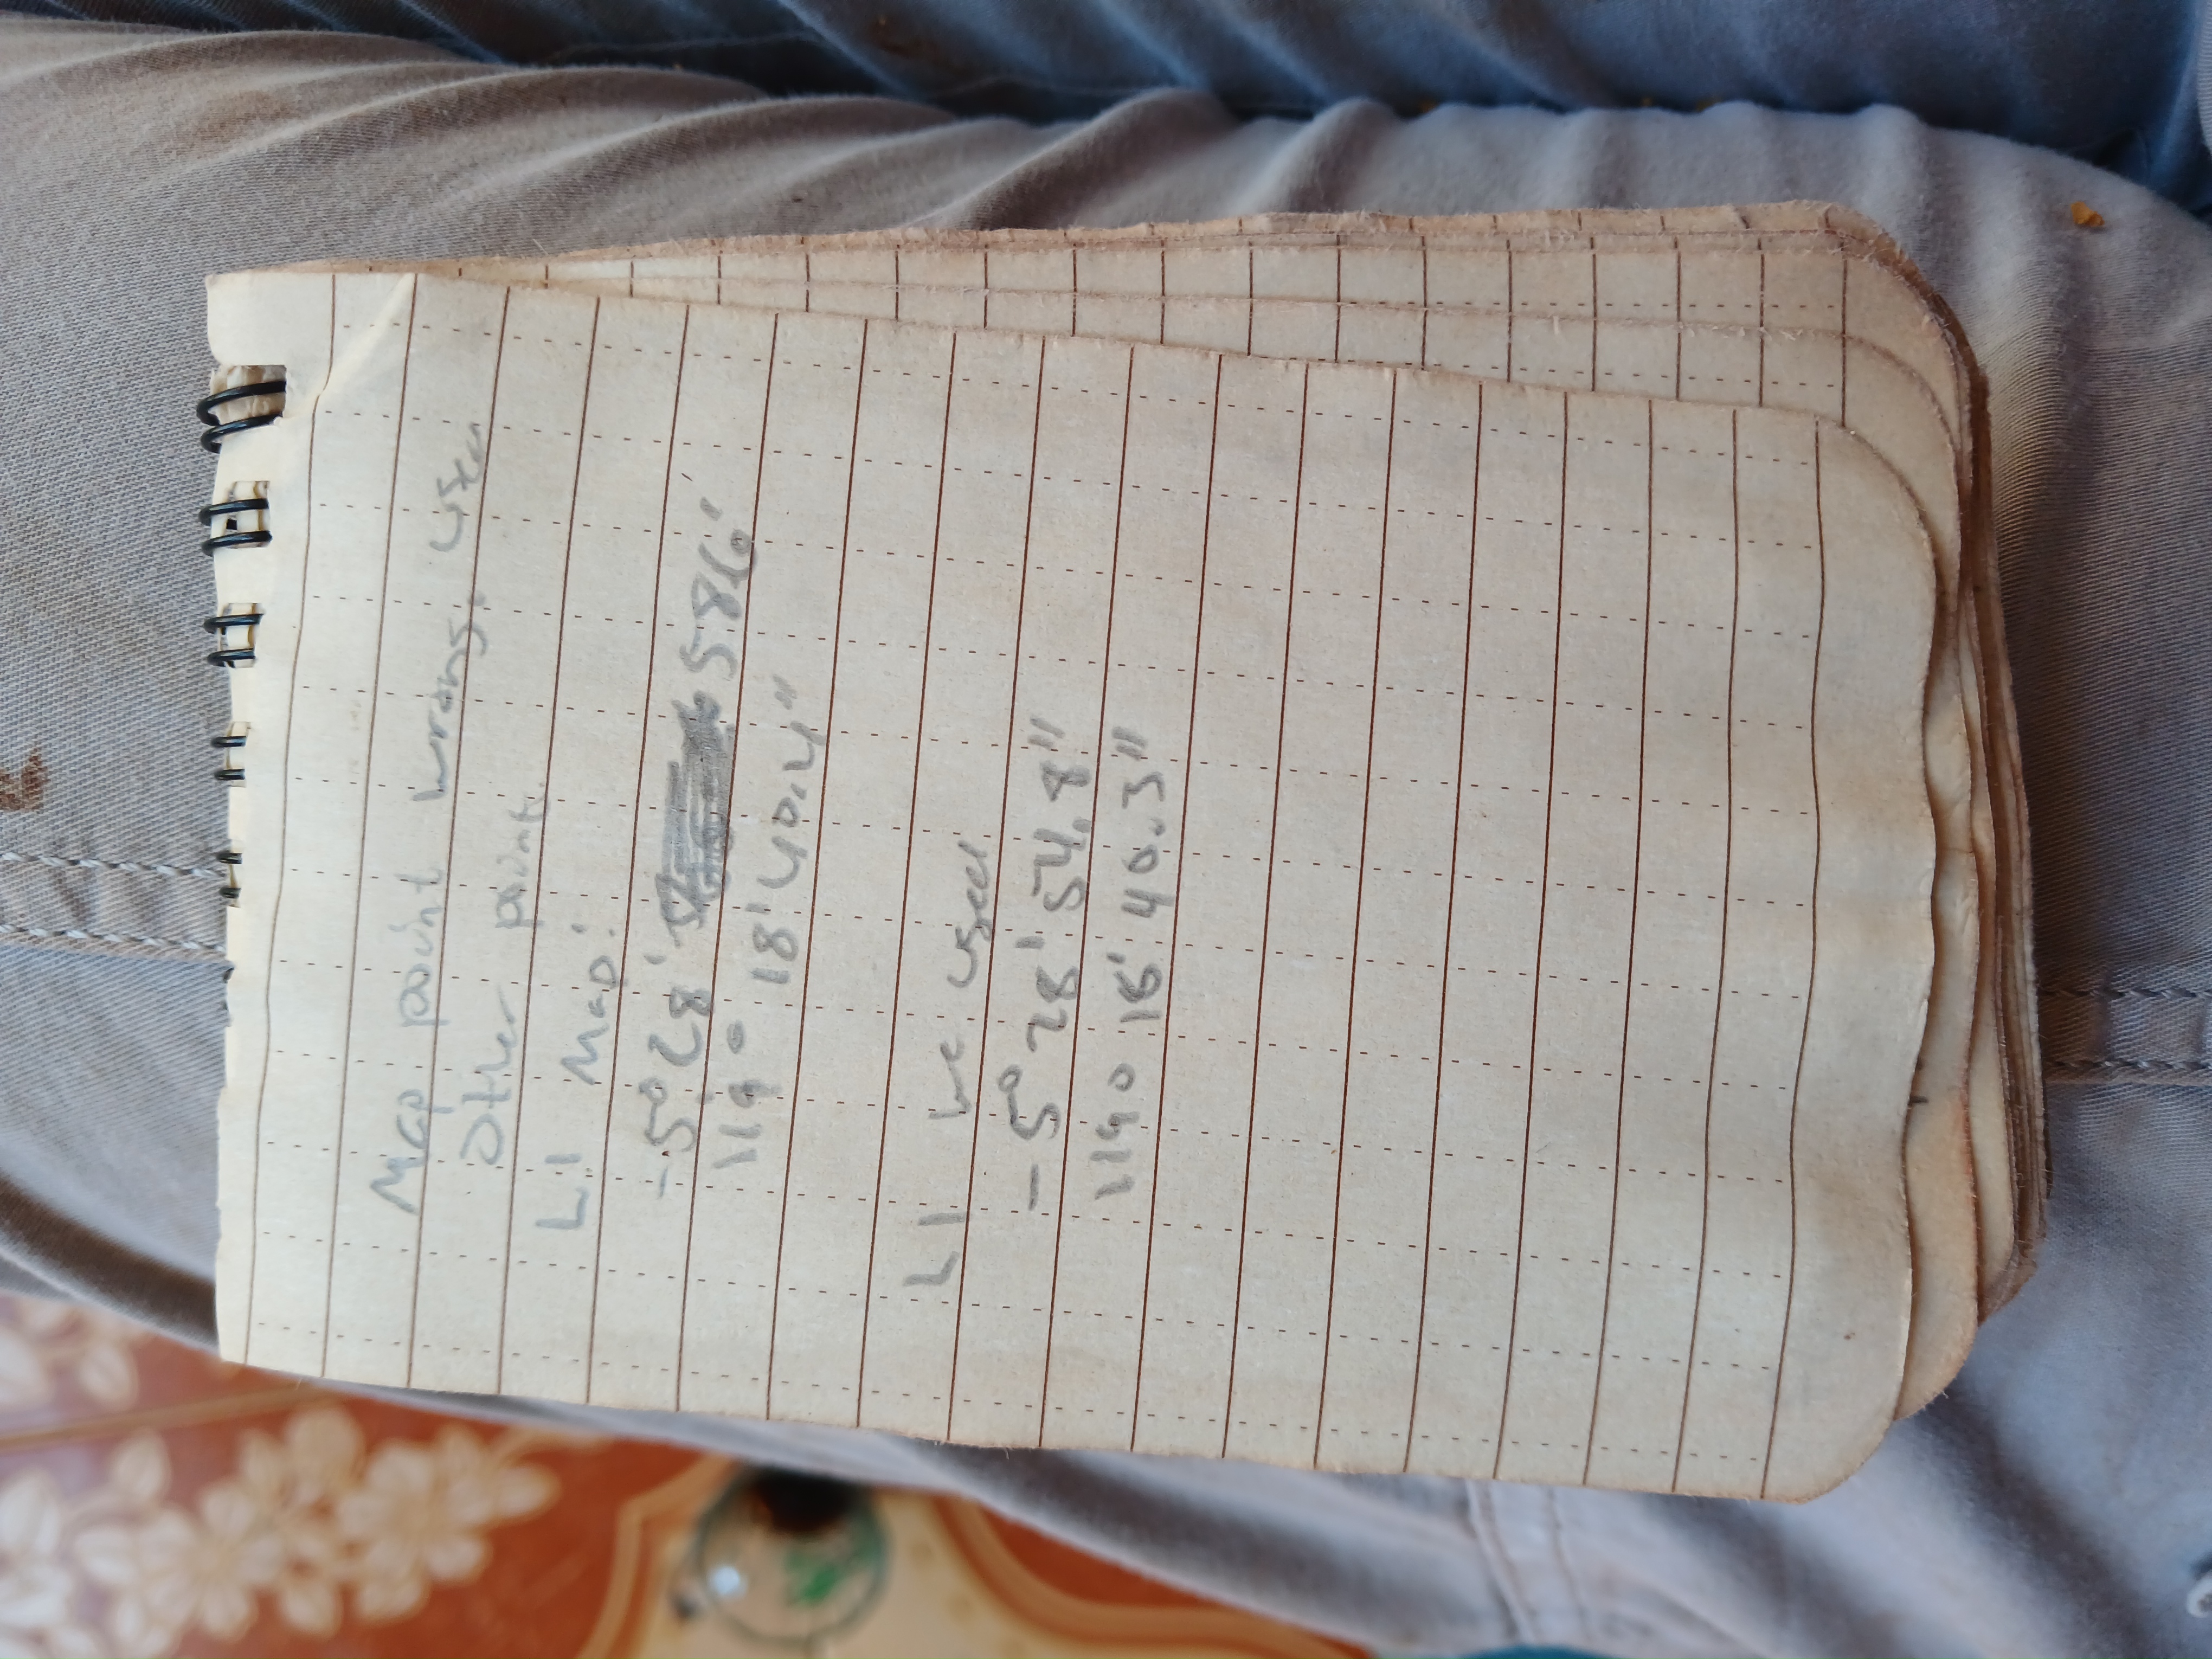 Map point wrong. Used
Other point.
L1 Map:
-5° 28' 586'
119° 18' 40.4"
L1 we used
-5° 28' 54.8"
119° 18' 40.3"